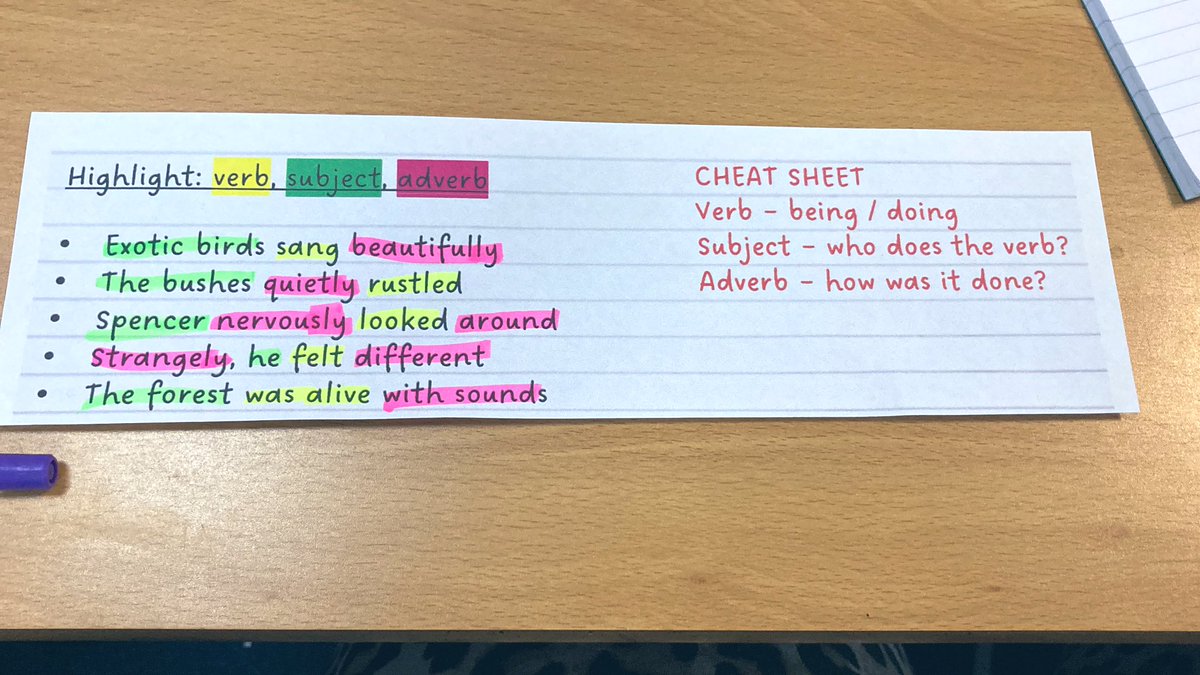 Highlight: verb, subject, adverb
• Exotic birds sang beautifully
• The bushes quietly rustled
• Spencer nervously looked around
• Strangely, he felt different
• The forest was alive with sounds
CHEAT SHEET
Verb – being / doing
Subject – who does the verb?
Adverb – how was it done?